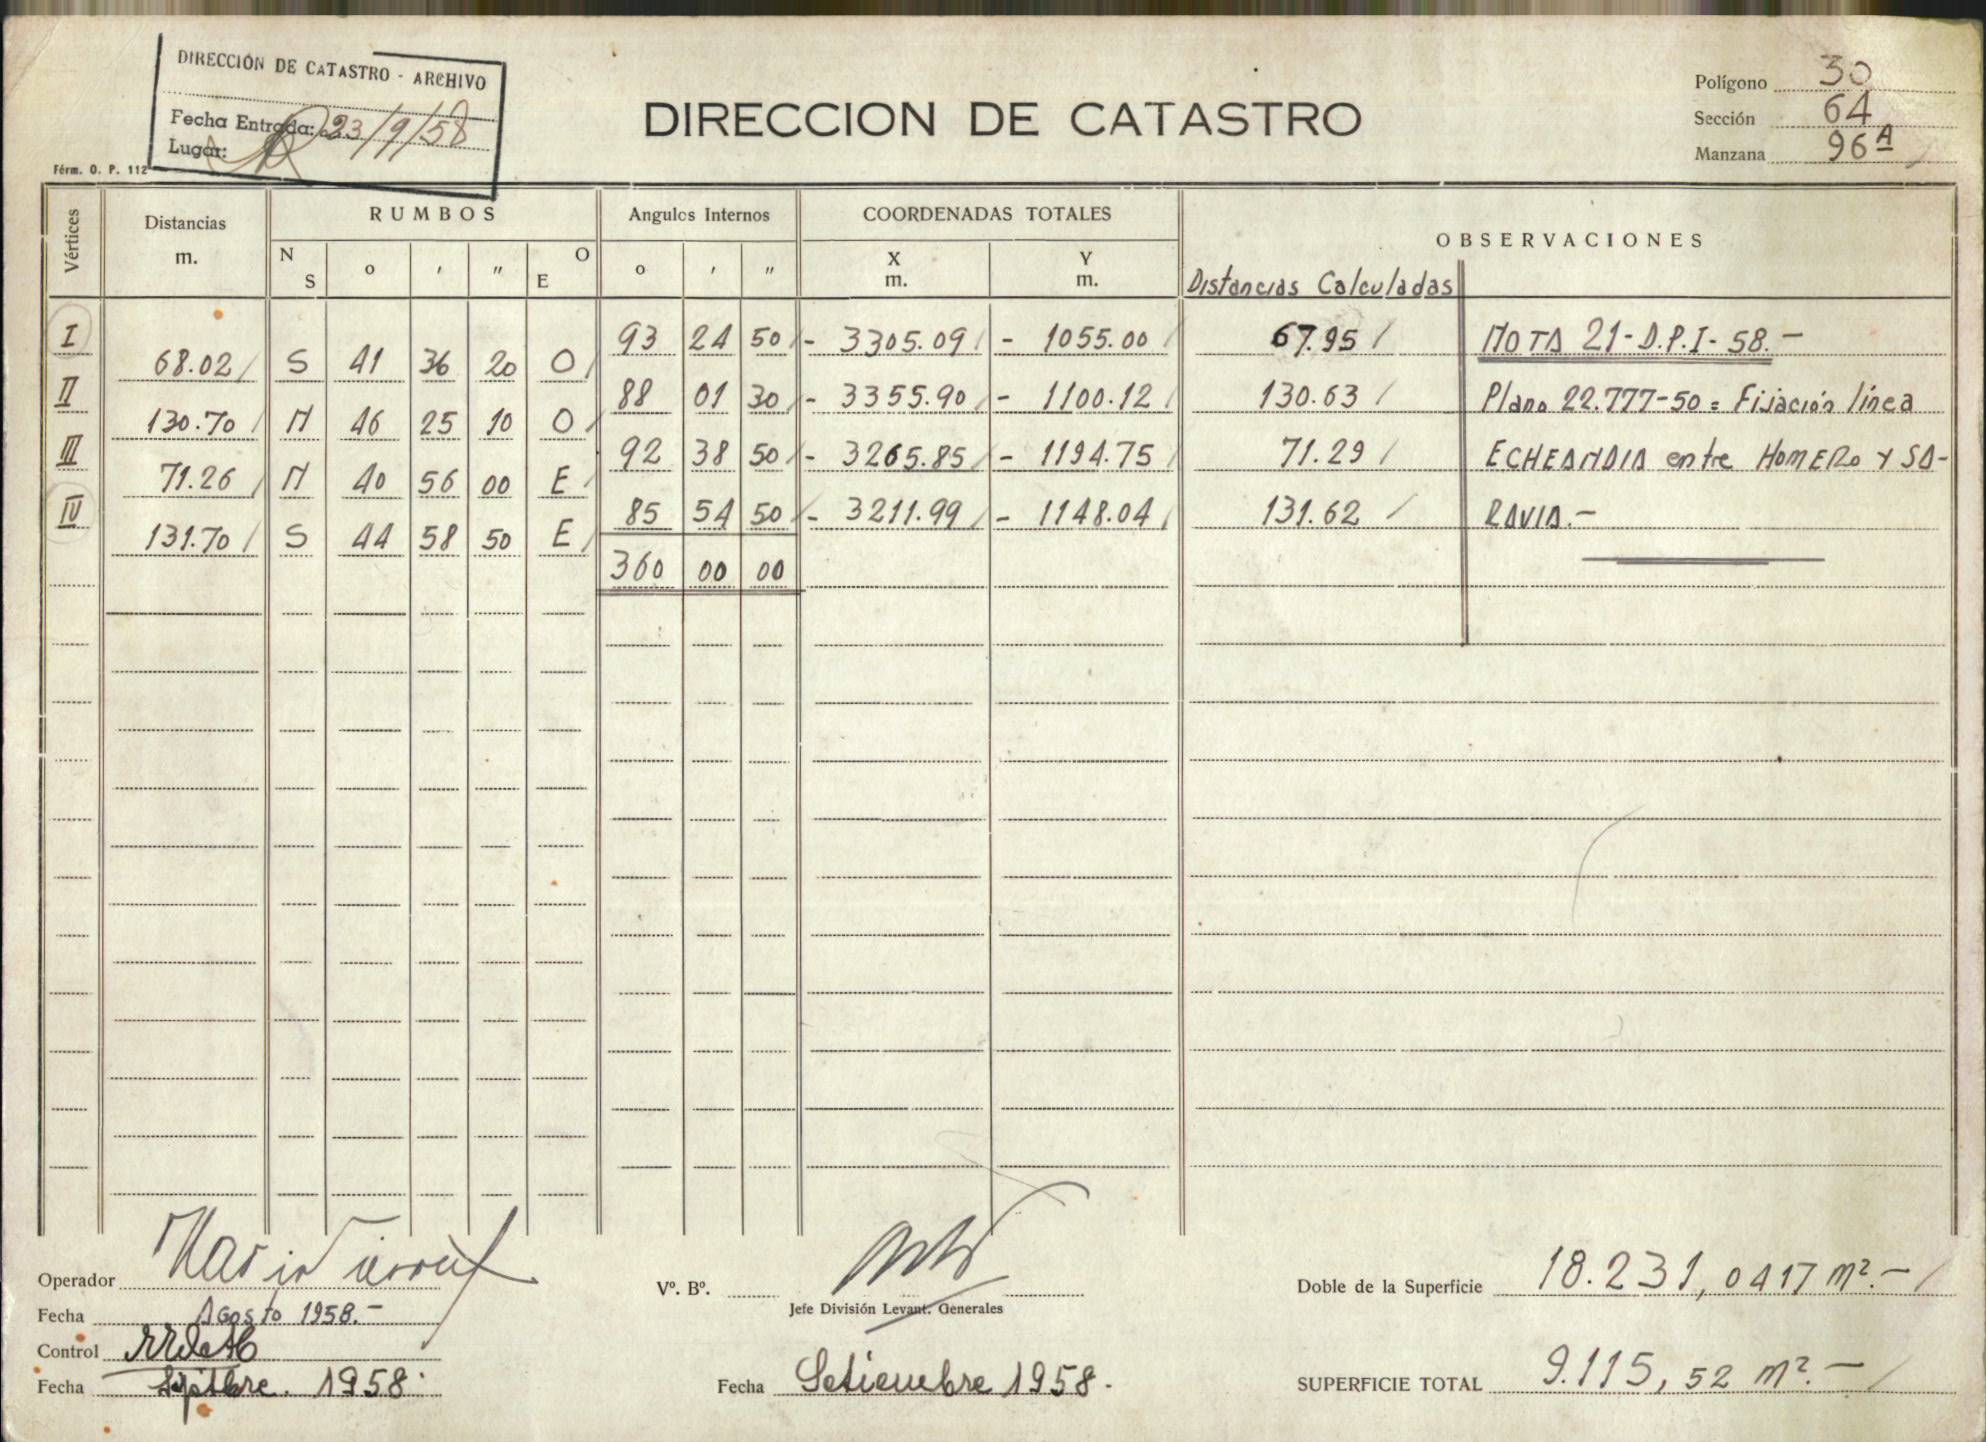 DIRECCIÓN DE CATASTRO - ARCHIVO
Fecha Entrada: 23/9/58
Lugar:
Férm. O. P. 112
DIRECCION DE CATASTRO
Polígono 30
Sección 64
Manzana 96 A
Vértices Distancias m. RUMBOS Angulos Internos COORDENADAS TOTALES OBSERVACIONES
N S o ' " O E o ' " X m. Y m. Distancias Calculadas
I 93 24 50 - 3305.09 - 1055.00 67.95 NOTA 21-D.P.I-58.-
68.02 S 41 36 20 O
II 88 01 30 - 3355.90 - 1100.12 130.63 Plano 22.777-50 = Fijación línea
130.70 N 46 25 10 O
III 92 38 50 - 3265.85 - 1194.75 71.29 ECHEANDIA entre HOMERO Y SA-
71.26 N 40 56 00 E
IV 85 54 50 - 3211.99 - 1148.04 131.62 RAVIA.-
131.70 S 44 58 50 E
360 00 00
Operador
Fecha Agosto 1958.-
Control
Fecha Septbre. 1958.
Vº. Bº.
Jefe División Levant. Generales
Fecha Setiembre 1958.
Doble de la Superficie 18.231,0417 m².-
SUPERFICIE TOTAL 9.115,52 m².-